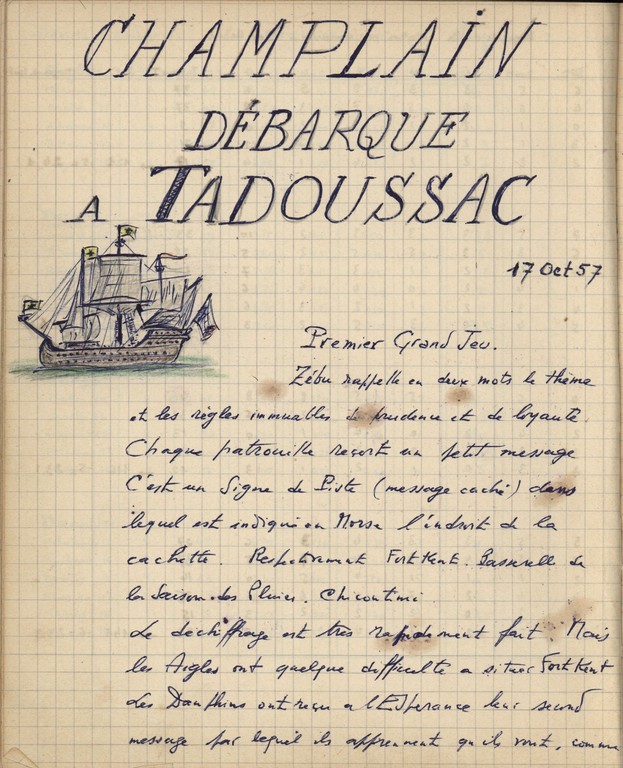 CHAMPLAIN
DÉBARQUE
A TADOUSSAC
17 Oct 57
Premier Grand Jeu.
Zébu rappelle en deux mots le thème
et les règles immuables de prudence et de loyauté.
Chaque patrouille reçoit un petit message
C'est un Signe de Piste (message caché) dans
lequel est indiqué en Morse l'endroit de la
cachette. Respectivement Fort Kent. Passerelle de
la Saison des Pluies. Chicoutimi.
Le déchiffrage est très rapidement fait. Mais
les Aigles ont quelque difficulté a situer Fort Kent
Les Dauphins ont reçu a l'Espérance leur second
message par lequel ils apprennent qu'ils vont, comme